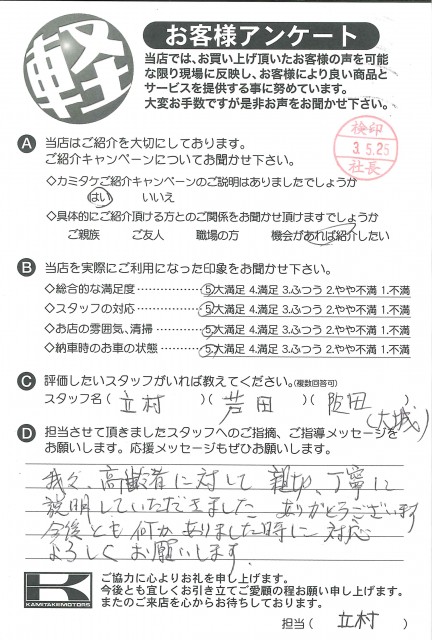 軽
お客様アンケート
当店では、お買い上げ頂いたお客様の声を可能
な限り現場に反映し、お客様により良い商品と
サービスを提供する事に努めています。
大変お手数ですが是非お声をお聞かせ下さい。
検印
3.5.25
社長
A 当店はご紹介を大切にしております。
ご紹介キャンペーンについてお聞かせ下さい。
◇カミタケご紹介キャンペーンのご説明はありましたでしょうか
はい いいえ
◇具体的にご紹介頂ける方とのご関係をお聞かせ頂けますでしょうか
ご親族 ご友人 職場の方 機会があれば紹介したい
B 当店を実際にご利用になった印象をお聞かせ下さい。
◇総合的な満足度……………5.大満足 4.満足 3.ふつう 2.やや不満 1.不満
◇スタッフの対応……………5.大満足 4.満足 3.ふつう 2.やや不満 1.不満
◇お店の雰囲気、清掃…………5.大満足 4.満足 3.ふつう 2.やや不満 1.不満
◇納車時のお車の状態…………5.大満足 4.満足 3.ふつう 2.やや不満 1.不満
C 評価したいスタッフがいれば教えてください。(複数回答可)
スタッフ名(立村)(芦田)(阪田)
(大城)
D 担当させて頂きましたスタッフへのご指摘、ご指導メッセージを
お願いします。応援メッセージもぜひお願いします。
我々、高齢者に対して親切、丁寧に
説明していただきました ありがとうございます
今後とも何かありました時に対応
よろしくお願いします。
K
KAMITAKEMOTORS
ご協力に心よりお礼を申し上げます。
今後とも宜しくお引き立てご愛顧の程お願い申し上げます。
またのご来店を心からお待ちしております。
担当(立村)